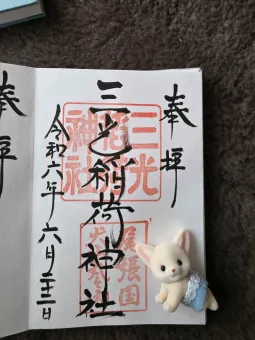 奉拝
三光稲荷神社
令和六年六月二十三日
三光
稲荷
神社
尾張国
奉拝